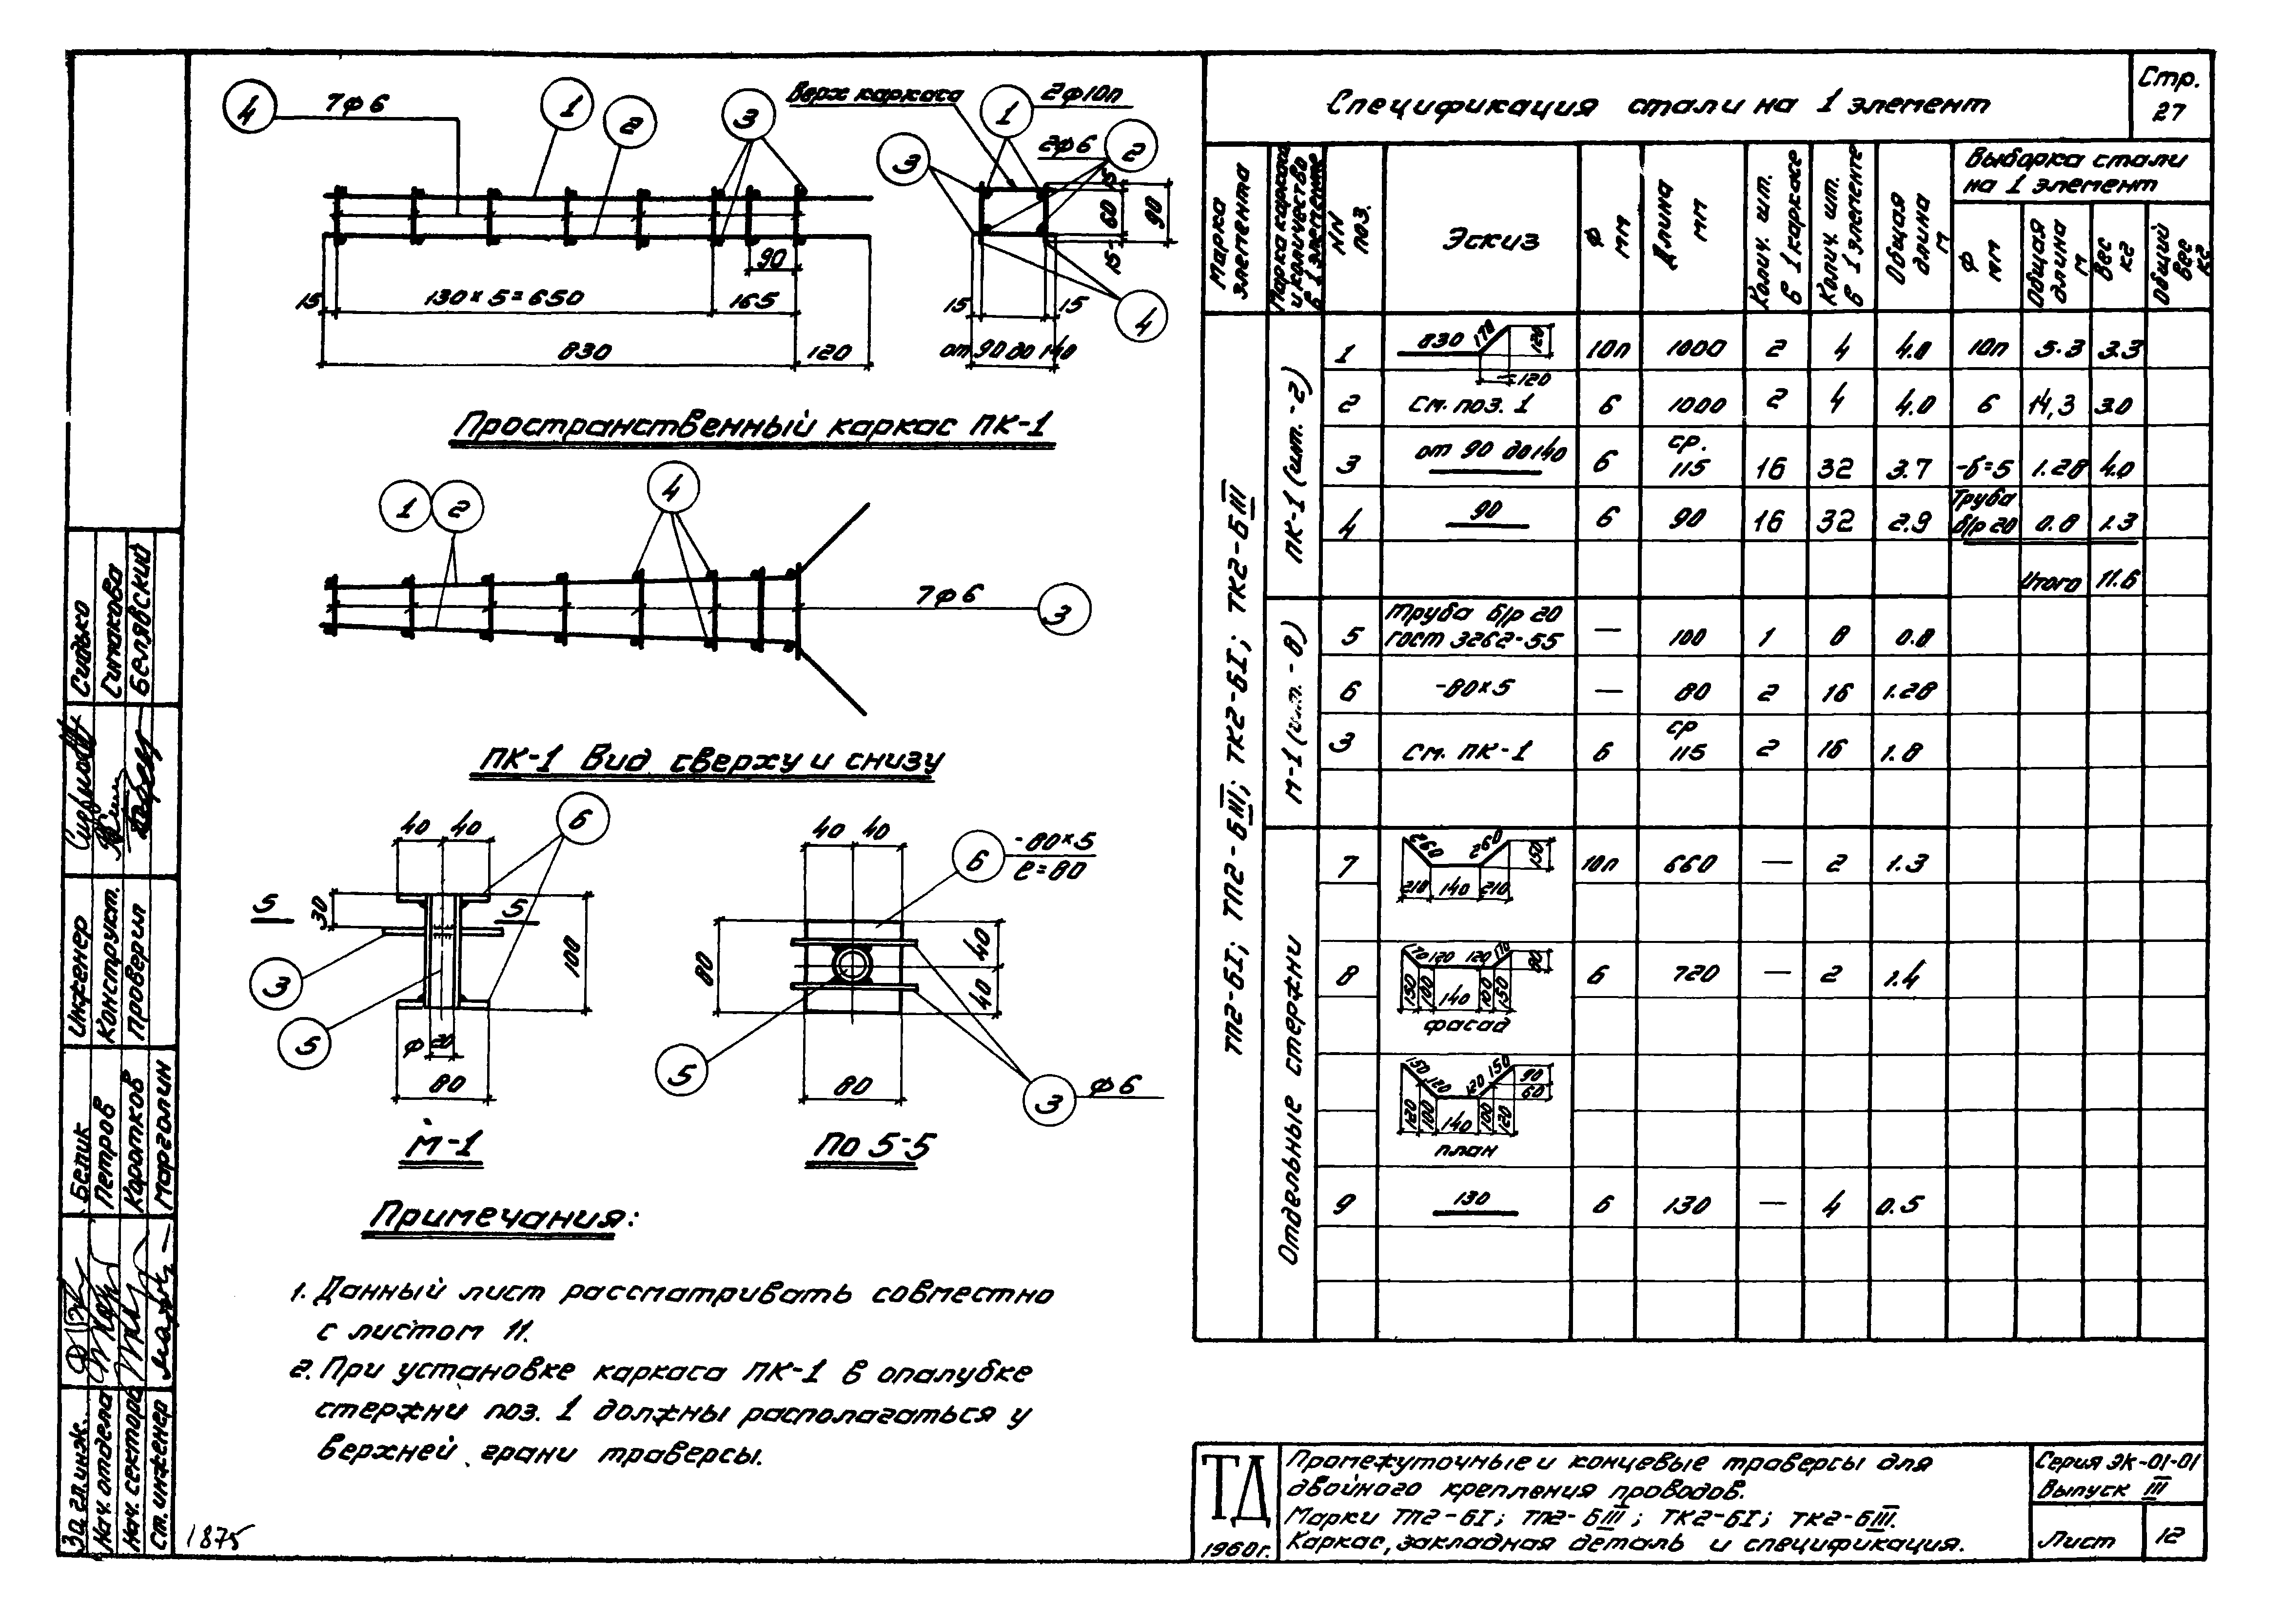 4
7ф6
1
2
3
Верх каркаса
1
2ф10п
2ф6
2
3
15
60
90
15
4
90
15
130×5=650
165
830
120
15
15
от 90 до 140
Пространственный каркас ПК-1
1
2
4
7ф6
3
ПК-1 Вид сверху и снизу
40
40
6
5
30
5
3
100
5
ф 20
80
М-1
40
40
6
-80×5
ℓ=80
80
40
40
5
80
3
ф6
По 5-5
Примечания:
1. Данный лист рассматривать совместно
с листом 11.
2. При установке каркаса ПК-1 в опалубке
стержни поз. 1 должны располагаться у
верхней грани траверсы.
Спецификация стали на 1 элемент
Стр.
27
Марка элемента
Марка каркаса и количество в 1 элементе
NN поз.
Эскиз
ф мм
Длина мм
Колич. шт. в 1 каркасе
Колич. шт. в 1 элементе
Общая длина м
Выборка стали
на 1 элемент
ф мм
Общая длина м
Вес кг
Общий вес кг
ТП2-6I; ТП2-6III; ТК2-6I; ТК2-6III
ПК-1 (шт. -2)
1 830 170 120 120 10п 1000 2 4 4.0 10п 5.3 3.3
2 См. поз. 1 6 1000 2 4 4.0 6 14,3 3.0
3 от 90 до 140 6 ср. 115 16 32 3.7 -б=5 1.28 4.0
4 90 6 90 16 32 2.9 Труба б/р 20 0.8 1.3
Итого 11.6
М-1 (шт. - 8)
5 Труба б/р 20 ГОСТ 3262-55 — 100 1 8 0.8
6 -80×5 — 80 2 16 1.28
3 См. ПК-1 6 ср 115 2 16 1.8
Отдельные стержни
7 260 260 150 210 140 210 10п 660 — 2 1.3
8 170 120 120 170 80 150 100 140 100 150 6 720 — 2 1.4
фасад
150 120 120 150 90 60 120 100 140 100 120
план
9 130 6 130 — 4 0.5
Сидько
Симакова
Белявский
Инженер
Конструкт.
Проверил
Белик
Петров
Коротков
Марголин
За гл. инж.
Нач. отдела
Нач. сектора
Ст. инженер
1875
ТД
1960г.
Промежуточные и концевые траверсы для
двойного крепления проводов.
Марки ТП2-6I; ТП2-6III; ТК2-6I; ТК2-6III.
Каркас, закладная деталь и спецификация.
Серия ЭК-01-01
Выпуск III
Лист
12